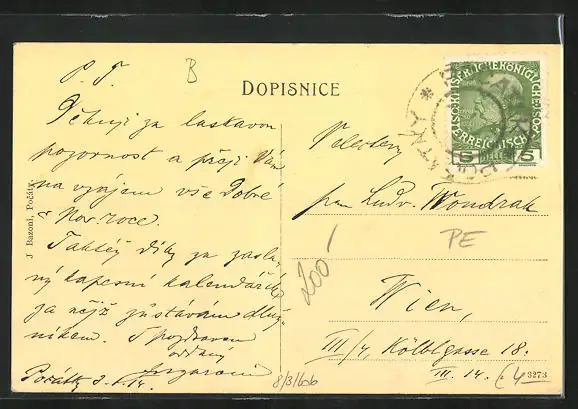 P. T.
B
DOPISNICE
Děkuji za laskavou
pozornost a přeji Vám
na vzájem vše Dobré
v Nov. roce.
Taktéž díky za zasla-
ný kapesní kalendářík
za nějž zůstávám dluž-
níkem. S pozdravem
oddaný
Počátky 3.1.14.
J Bazoni, Počátky
Velectěný
pan Ludv. Wondrak
PE
200
Wien,
III/4, Kölblgasse 18.
III. 14.
3273
8/3/66
5 HELLER 5